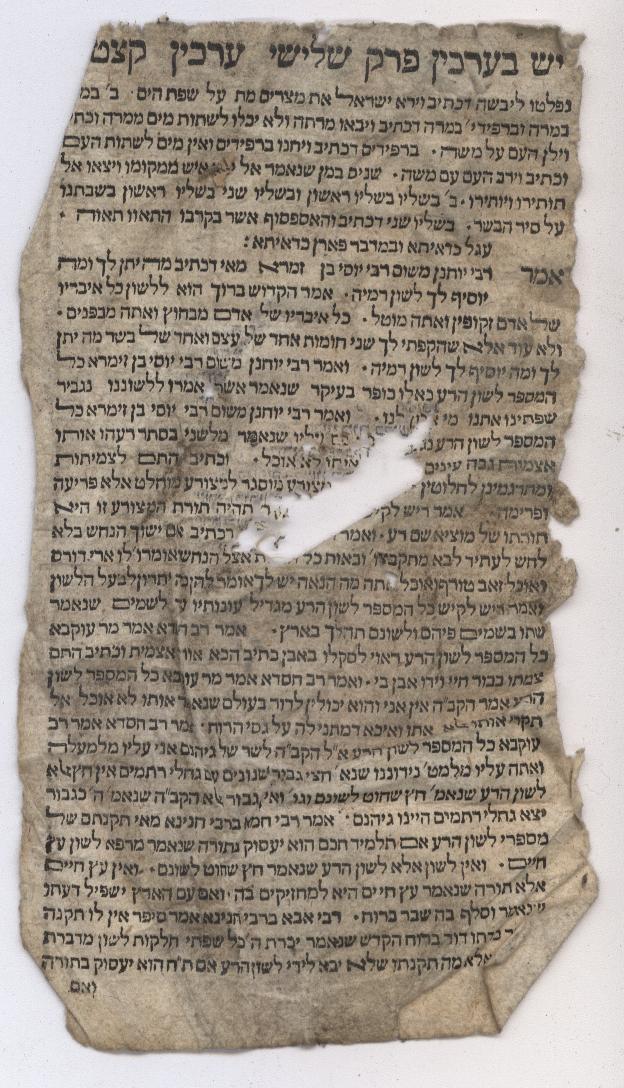 יש בערכין פרק שלישי ערכין קצט
נפלטו ליבשה דכתיב וירא ישראל את מצרים מת על שפת הים ׃ ב׳ במ
במרה וברפידי׳ במרה דכתיב ויבאו מרתה ולא יכלו לשתות מים ממרה וכתי
וילן העם על משה ׃ ברפידים דכתיב ויחנו ברפידים ואין מים לשתות העם
וכתיב וירב העם עם משה ׃ שנים במן שנאמר אל איש ממקומו ויצאו אל
תותירו ויותירו ׃ ב׳ בשליו בשליו ראשון ובשליו שני בשליו ראשון בשבתנו
על סיר הבשר ׃ בשליו שני דכתיב והאספסוף אשר בקרבו התאוו תאוה ׃
עגל כדאיתא ובמדבר פארן כדאיתא :
אמר רבי יוחנן משום רבי יוסי בן זמרא מאי דכתיב מה יתן לך ומה
יוסיף לך לשון רמיה ׃ אמר הקדוש ברוך הוא ללשון כל איבריו
של אדם זקופין ואתה מוטל ׃ כל איבריו של אדם מבחוץ ואתה מבפנים ׃
ולא עוד אלא שהקפתי לך שני חומות אחד של עצם ואחד של בשר מה יתן
לך ומה יוסיף לך לשון רמיה ׃ ואמר רבי יוחנן משום רבי יוסי בן זימרא כל
המספר לשון הרע כאלו כופר בעיקר שנאמר אשר אמרו ללשוננו נגביר
שפתינו אתנו מי לנו ׃ ואמר רבי יוחנן משום רבי יוסי בן זימרא כל
המספר לשון הרע עליו שנאמר מלשני בסתר רעהו אותו
אצמית גבה עינים אותו לא אוכל ׃ וכתיב התם לצמיתות
ומתרגמינן לחלוטין מצורע מוסגר למצורע מוחלט אלא פריעה
ופרימה ׃ אמר ריש לקיש תהיה תורת המצורע זו היא
תורתו של מוציא שם רע ׃ ואמר דכתיב אם ישוך הנחש בלא
לחש לעתיד לבא מתקבצו׳ ובאות כל אצל הנחש ואומרי׳ לו ארי דורס
ואוכל זאב טורף ואוכל אתה מה הנאה יש לך אומר להן מה יתרון לבעל הלשון
ואמר ריש לקיש כל המספר לשון הרע מגדיל עונותיו עד לשמים שנאמר
שתו בשמים פיהם ולשונם תהלך בארץ ׃ אמר רב חסדא אמר מר עוקבא
כל המספר לשון הרע ראוי לסקלו באבן כתיב הכא אותו אצמית וכתיב התם
צמתו בבור חיי וידו אבן בי ׃ ואמר רב חסדא אמר מר עוקבא כל המספר לשון
הרע אמר הקב״ה אין אני והוא יכולין לדור בעולם שנאמר אותו לא אוכל אל
תקרי אותו לא אתו ואיכא דמתני לה על גסי הרוח ׃ אמר רב חסדא אמר רב
עוקבא כל המספר לשון הרע א״ל הקב״ה לשר של גיהנם אני עליו מלמעלה
ואתה עליו מלמט׳ נידוננו שנא׳ חצי גבור שנונים עם גחלי רתמים אין חץ לא
לשון הרע שנאמ׳ חץ שחוט לשונם וגו׳ ואין גבור לא הקב״ה שנאמ׳ ה׳ כגבור
יצא גחלי רתמים היינו גיהנם ׃ אמר רבי חמא ברבי חנינא מאי תקנתם של
מספרי לשון הרע אם תלמיד חכם הוא יעסוק בתורה שנאמר מרפא לשון עץ
חיים ׃ ואין לשון אלא לשון הרע שנאמר חץ שחוט לשונם ׃ ואין עץ חיים
אלא תורה שנאמר עץ חיים היא למחזיקים בה ׃ ואם עם הארץ ישפיל דעתו
שנאמר וסלף בה שבר ברוח ׃ רבי אבא ברבי חנינא אמר סיפר אין לו תקנה
כרתו דוד ברוח הקדש שנאמר יכרת ה׳ כל שפתי חלקות לשון מדברת
אלא מה תקנתו שלא יבא לידי לשון הרע אם ת״ח הוא יעסוק בתורה
ואם